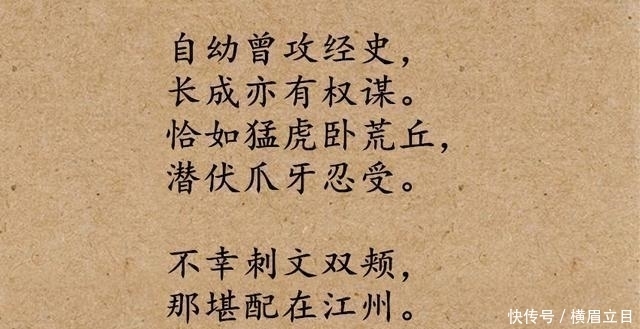 自幼曾攻经史，
长成亦有权谋。
恰如猛虎卧荒丘，
潜伏爪牙忍受。
不幸刺文双颊，
那堪配在江州。
快传号／横眉立目